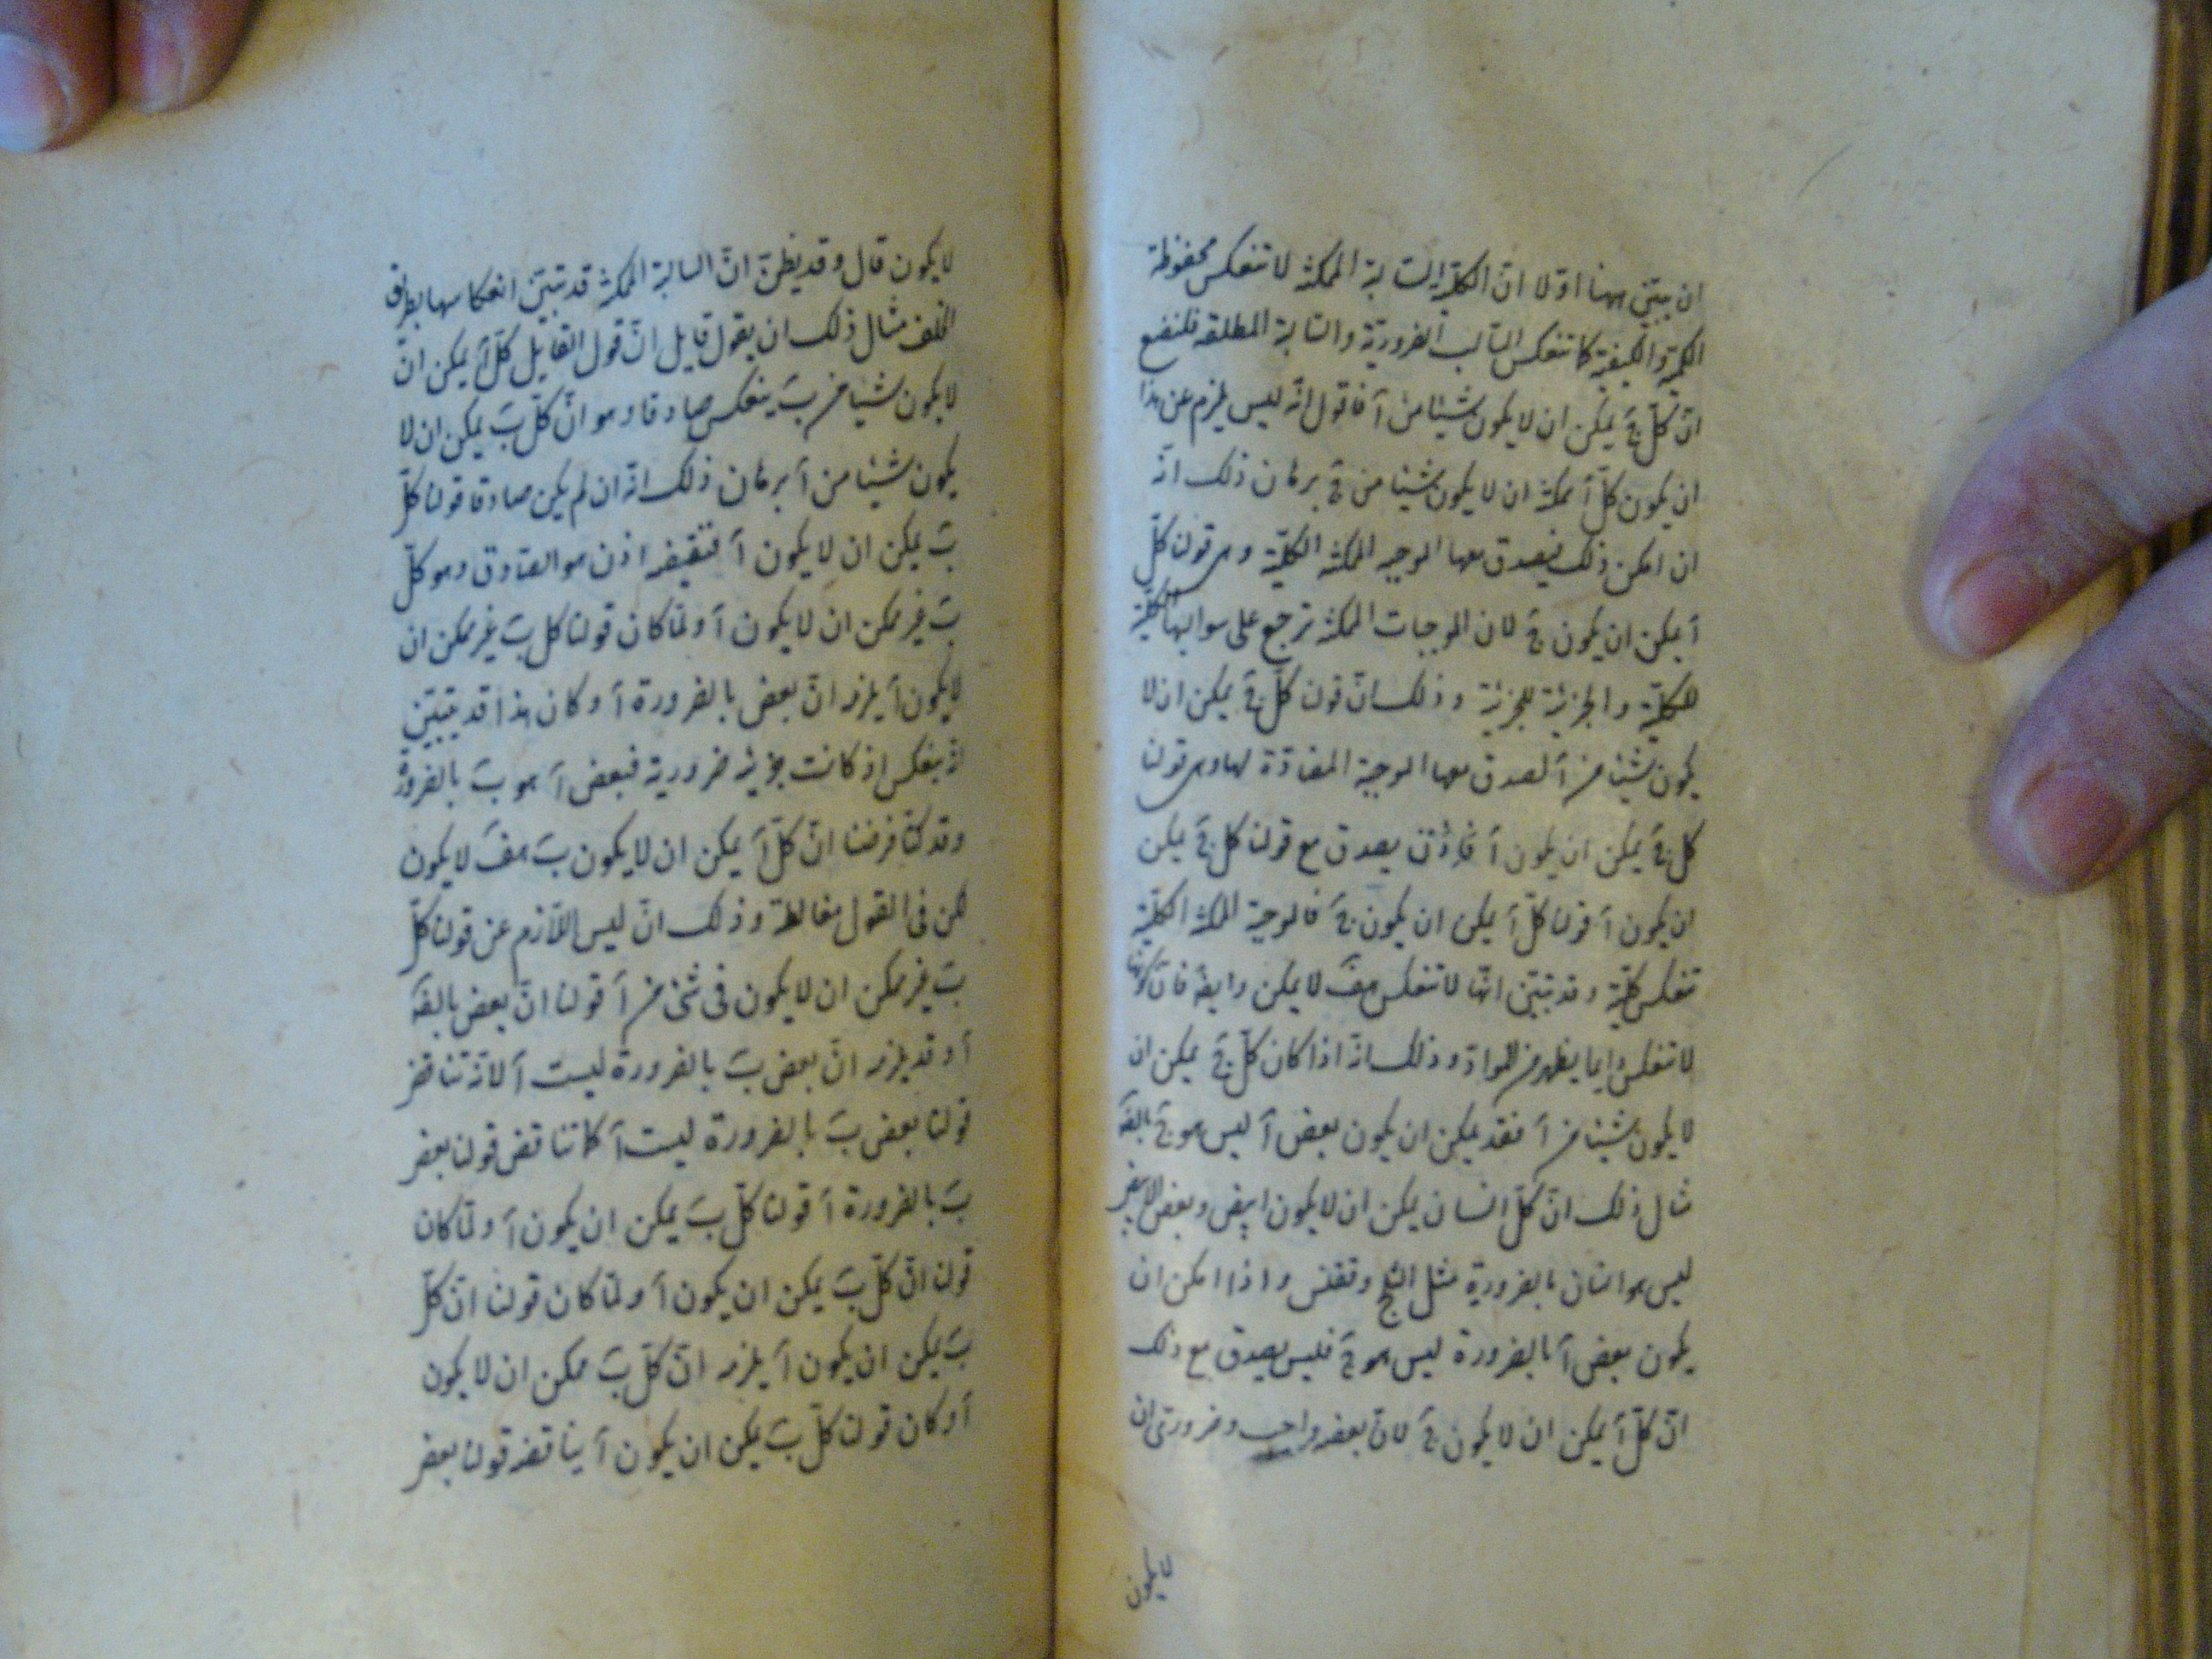 ان يبيّن ههنا اوّلا انّ الكليّة السالبة الممكنة لا تنعكس محفوظة
الكميّة والكيفيّة كما تنعكس السالبة الضروريّة والسالبة المطلقة فلنضع
انّ كلّ جَ يمكن ان لا يكون شيئا من آ فاقول انّه ليس يلزم عن هذا
ان يكون كلّ آ يمكن ان لا يكون شيئا من جَ برهان ذلك انّه
ان امكن ذلك فيصدق معها الموجبه الممكنه الكليّة وهى قولنا كلّ
آ يمكن ان يكون جَ لان الموجبات الممكنه ترجع على سوالبها الكليّة
للكليّة والجزئيّة للجزئيّة وذلك انّ قولنا كلّ جَ يمكن ان لا
يكون شيئا من آ تصدق معها الموجبة المضادّة لها وهى قولنا
كل جَ يمكن ان يكون آ فاذن يصدق مع قولنا كل جَ يمكن
ان يكون آ قولنا كلّ آ يمكن ان يكون جَ فالموجبة الممكنه الكليّة
تنعكس كليّة وقد تبيّن انّها لا تنعكس هفَ لا يمكن وايضا فانّ كونها
لا تنعكس ايما يظهر من المواد وذلك انّه اذا كان كلّ جَ يمكن ان
لا يكون شيئا من آ فقد يمكن ان يكون بعض آ ليس هو جَ بالضَ
مثال ذلك انّ كلّ انسان يمكن ان لا يكون ابيض وبعض الابيض
ليس هو انسان بالضرورة مثل الثلج وققنس واذا امكن ان
يكون بعض آ بالضرورة ليس هو جَ فليس يصدق مع ذلك
انّ كلّ آ يمكن ان لا يكون جَ لانّ بعضه واجب وضرورتى ان
لا يكون
لا يكون قال وقد يظنّ انّ السالبة الممكنه قد تبيّن انعكاسها بطريق
الخلف مثال ذلك ان يقول قايل انّ قول القايل كلّ آ يمكن انّ
لا يكون شيئا من بَ ينعكس صادقا وهو انّ كلّ بَ يمكن ان لا
يكون شيئا من آ برهان ذلك انّه ان لم يكن صادقا قولنا كلّ
بَ يمكن ان لا يكون آ فنقيضه اذن هو الصادق وهو كلّ
بَ غير ممكن ان لا يكون آ ولمّا كان قولنا كل بَ غير ممكن ان
لا يكون آ يلزمه انّ بعض بالضرورة آ وكان هذا قد يتبيّن
انّه ينعكس اذ كانت جزئية ضرورية فبعض آ هو بَ بالضرورة
وقد كنّا فرضنا انّ كلّ آ يمكن ان لا يكون بَ هفَ لا يكون
لكن فى القول مغالطة وذلك انّ ليس اللازم عن قولنا كلّ
بَ غير ممكن ان لا يكون فى شئ من آ قولنا انّ بعض بالضَ
آ وقد يلزمه انّ بعض بَ بالضرورة ليست آ لانّه تناقض
قولنا بعض بَ بالضرورة ليست آ كما تناقض قولنا بعض
بَ بالضرورة آ قولنا كلّ بَ يمكن ان يكون آ ولمّا كان
قولنا انّ كلّ بَ يمكن ان يكون آ ولمّا كان قولنا انّ كلّ
بَ يمكن ان يكون آ يلزمه انّ كلّ بَ ممكن ان لا يكون
آ وكان قولنا كلّ بَ يمكن ان يكون آ يناقضه قولنا بعض